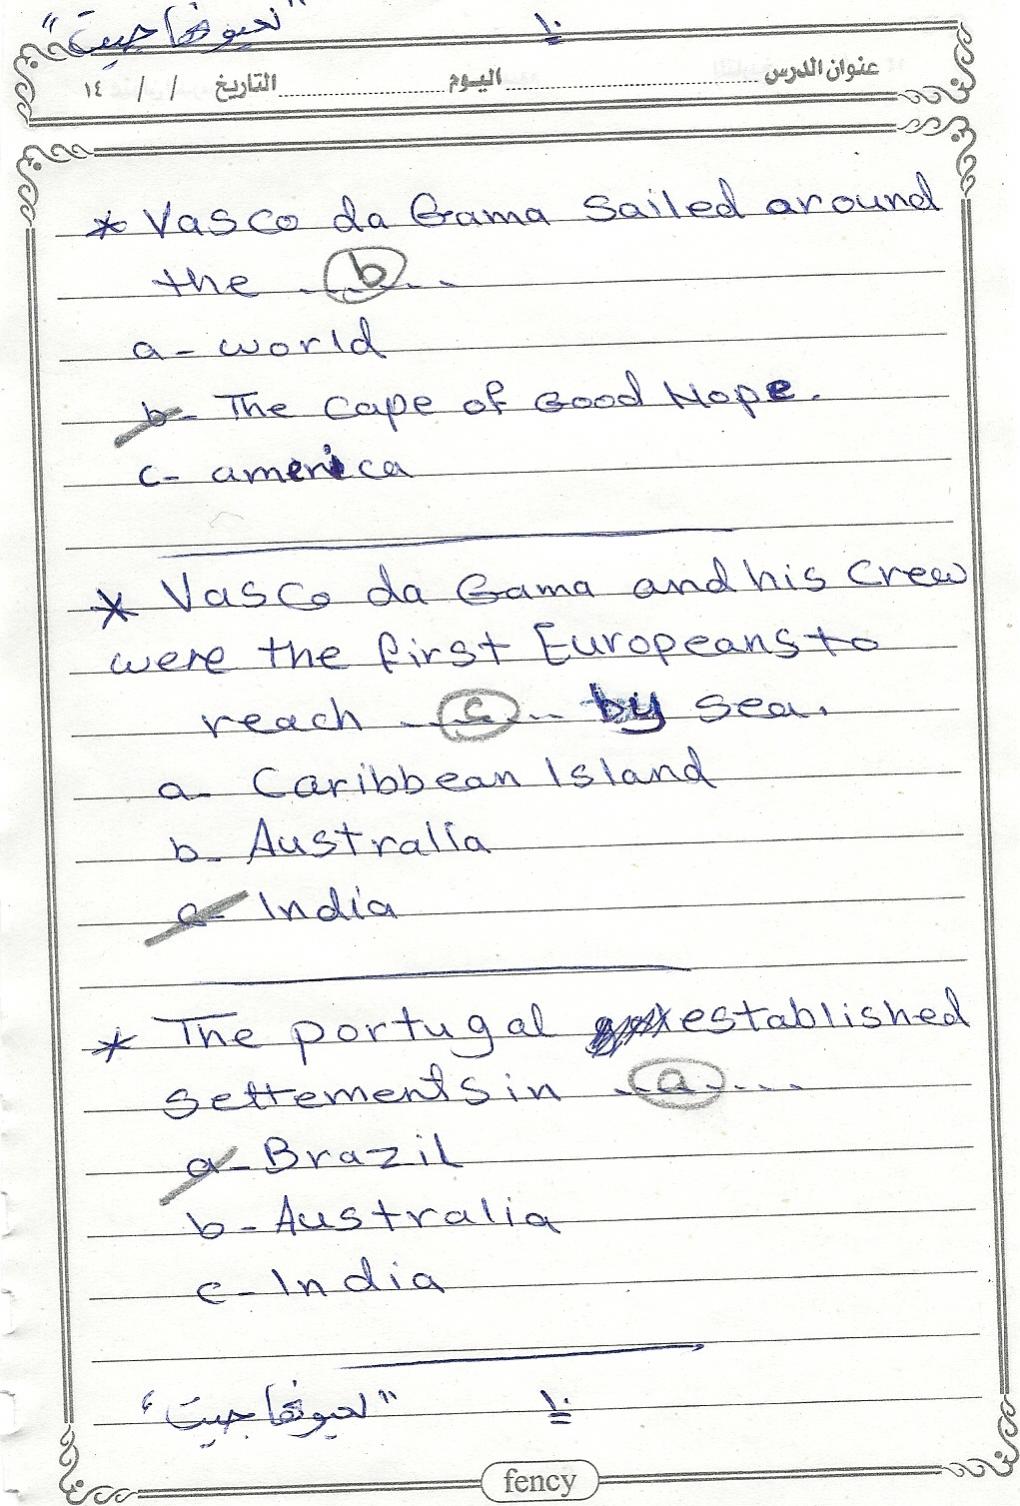 ١٠
عنوان الدرس اليوم التاريخ / / ١٤
* Vasco da Gama sailed around
the ... b ...
a - world
b - The Cape of Good Hope.
c - america
* Vasco da Gama and his crew
were the first Europeans to
reach ... c ... by sea.
a - Caribbean Island
b - Australia
c - India
* The portugal established
settements in ... a ...
a - Brazil
b - Australia
c - India
١٠
fency